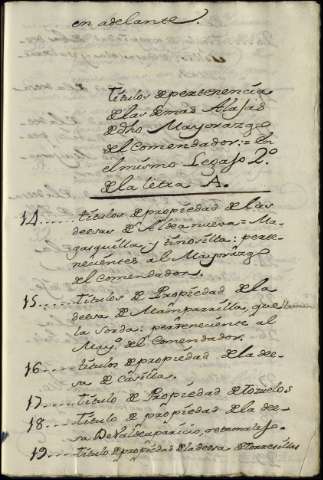 en adelante.
Titulos de pertenencia
de las demas Alajas
de dho Mayorazgo
del Comendador:= En
el mismo Legajo 2.º
de la letra A.
14..... titulos de propiedad de las
deesas de Aldeanueva= Ma-
gasquilla y tinosilla: perte-
necientes al Mayorazgo
del Comendador.
15..... Titulos de Propiedad de la
deesa de Mamparilla, que llaman
la Sorda: perteneciente al
May.º del Comendador.
16..... titulos de propiedad de la de-
esa de Casillas.
17..... titulo de Propiedad de Tozuelos
18..... titulo de propiedad de la de-
esa De Valdeaparicio, o
19..... titulo de propiedad de la deesa de Torrecillas